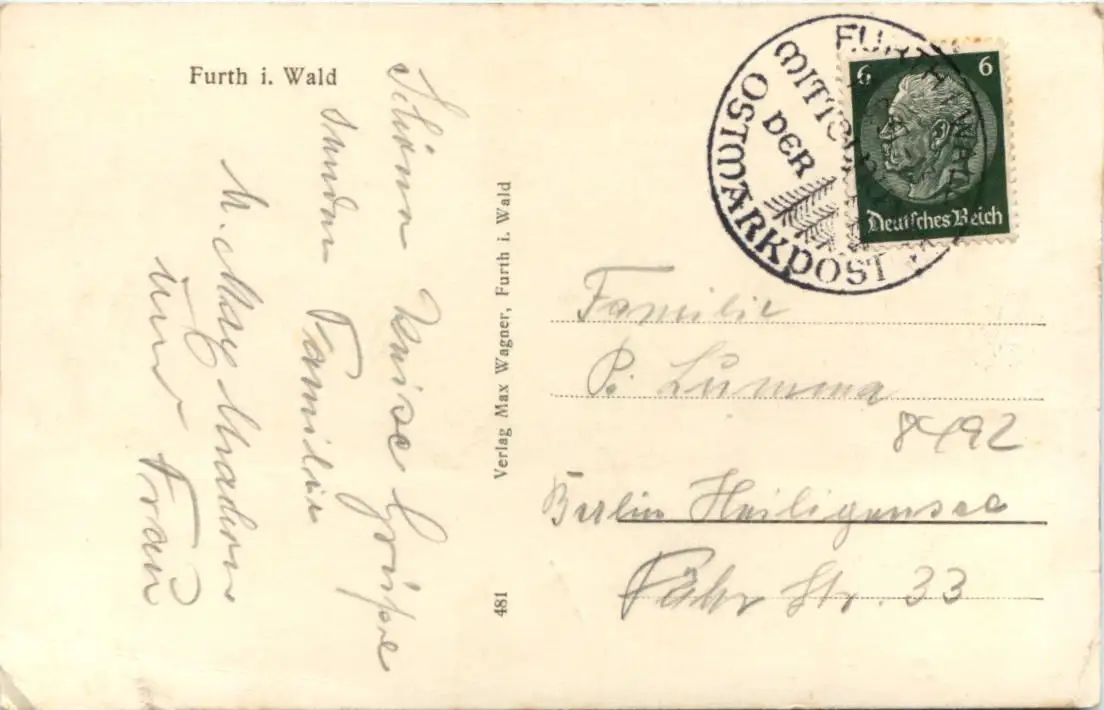 Furth i. Wald
Schöne Reise Grüße
senden Familie
und Frau
Verlag Max Wagner, Furth i. Wald
481
FURTH WALD
MITTELPUNKT
DER
OSTMARKPOST
6
6
Deutsches Reich
Familie
P. Lumma
8492
Berlin Heiligensee
Fähr Str. 33